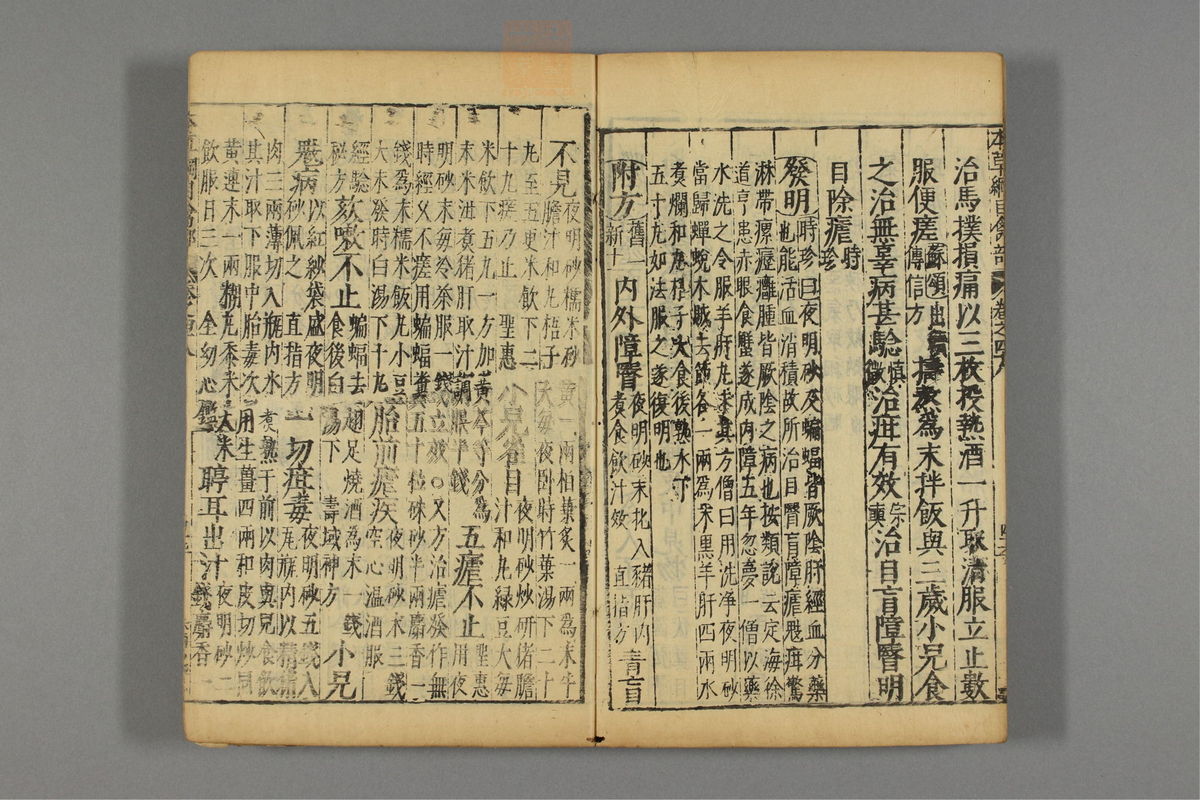 本草綱目禽部 卷之四十八
治馬撲損痛以三枚投熱酒一升取清服立止數
服便瘥蘇頌出續傳信方擣熬為末拌飯與三歲小兒食
之治無辜病甚驗慎微治疳有效宗奭治目盲障瞖明
目除瘧時珍
發明時珍曰夜明砂及蝙蝠皆厥陰肝經血分藥
也能活血消積故所治目瞖盲障瘧魃疳驚
淋帶瘰癧癰腫皆厥陰之病也按類說云定海徐
道亨患赤眼食蟹遂成內障五年忽夢一僧以藥
水洗之令服羊肝丸求其方僧曰用洗淨夜明砂
當歸蟬蛻木賊去節各一兩為末黑羊肝四兩水
煮爛和丸梧子大食後熟水下
五十丸如法服之遂復明也
附方舊一新十內外障瞖夜明砂末化入豬肝內煮食飲汁效 直指方青盲
不見夜明砂糯米炒黃一兩柏葉炙一兩為末牛
膽汁和丸梧子大每夜臥時竹葉湯下二十
丸至五更米飲下二
十丸瘥乃止 聖惠小兒雀目夜明砂炒研猪膽汁和丸綠豆大每
米飲下五丸一方加黃芩等分為
末米泔煮猪肝取汁調服半錢五瘧不止聖惠用夜
明砂末每冷服一錢立效○又方治瘧發作無
時經久不瘥用蝙蝠糞五十粒硃砂半兩麝香一
錢為末糯米飯丸小豆
大未發時白湯下十丸胎前瘧疾夜明砂末三錢空心溫酒服
經驗秘方欬嗽不止蝙蝠去翅足燒酒為末一錢食後白湯下 壽域神方小兒
魃病以紅紗袋盛夜明砂佩之 直指方一切疳毒夜明砂五錢入瓦瓶內以精猪
肉三兩薄切入瓶內水煑熟于前以肉與兒食飲
其汁取下腹中胎毒次用生薑四兩和皮切炒同
黃連末一兩糊丸黍米大米
飲服日三次 全幼心鑑聤耳出汁夜明砂二錢麝香一